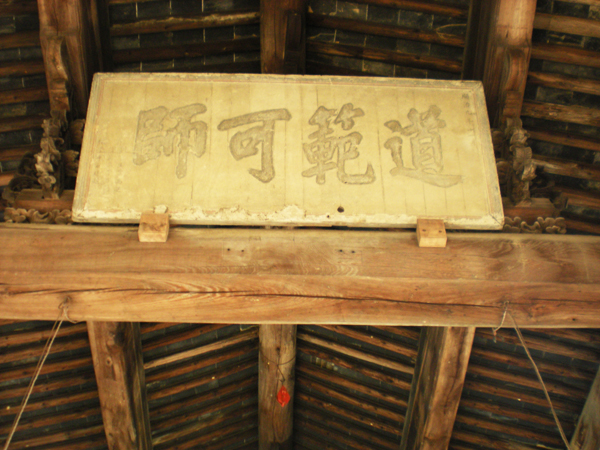 道範可師